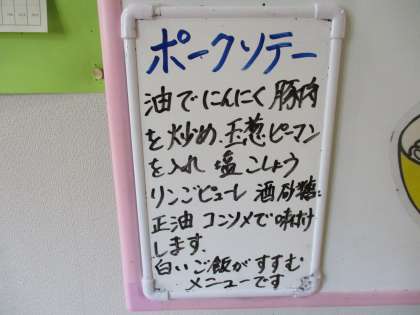 ポークソテー
油でにんにく豚肉
を炒め、玉葱ピーマン
を入れ 塩こしょう
リンゴピューレ 酒 砂糖、
正油 コンソメで味付け
します。
白いご飯がすすむ
メニューです